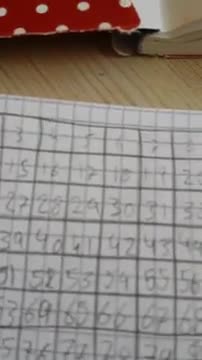 3 4 5 6 7
15 16 17 18 19 20
27 28 29 30 31 3
39 40 41 42 43 44
51 52 53 54 55 56
63 64 65 66 67 68